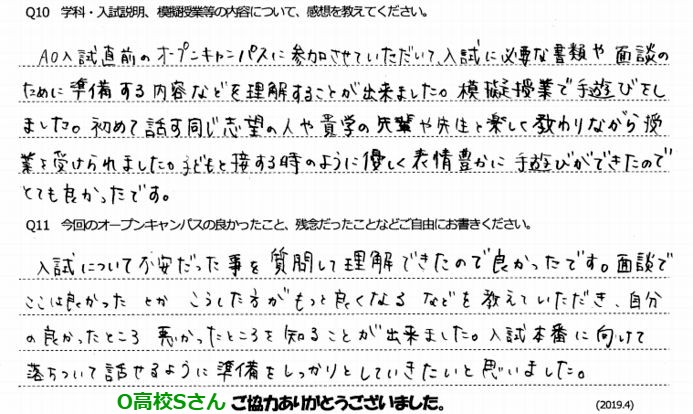 Q10 学科・入試説明、模擬授業等の内容について、感想を教えてください。
AO入試直前のオープンキャンパスに参加させていただいて、入試に必要な書類や面談の
ために準備する内容などを理解することが出来ました。模擬授業で手遊びをし
ました。初めて話す同じ志望の人や貴学の先輩や先生と楽しく教わりながら授
業を受けられました。子どもと接する時のように優しく表情豊かに手遊びができたので
とても良かったです。
Q11 今回のオープンキャンパスの良かったこと、残念だったことなどご自由にお書きください。
入試について不安だった事を質問して理解できたので良かったです。面談で
ここは良かった とか こうした方がもっと良くなる などを教えていただき、自分
の良かったところ 悪かったところを知ることが出来ました。入試本番に向けて
落ちついて話せるように準備をしっかりとしていきたいと思いました。
O高校Sさん ご協力ありがとうございました。 (2019.4)